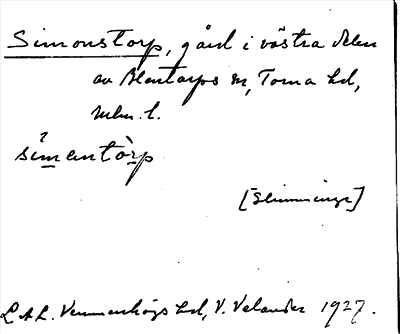 Simonstorp, gård i västra delen
av Blentarps sn, Torna hd,
Mlm. l.
simantòrp
[Slimminge]
L.A.L. Vemmenhögs hd, V. Velander 1927.